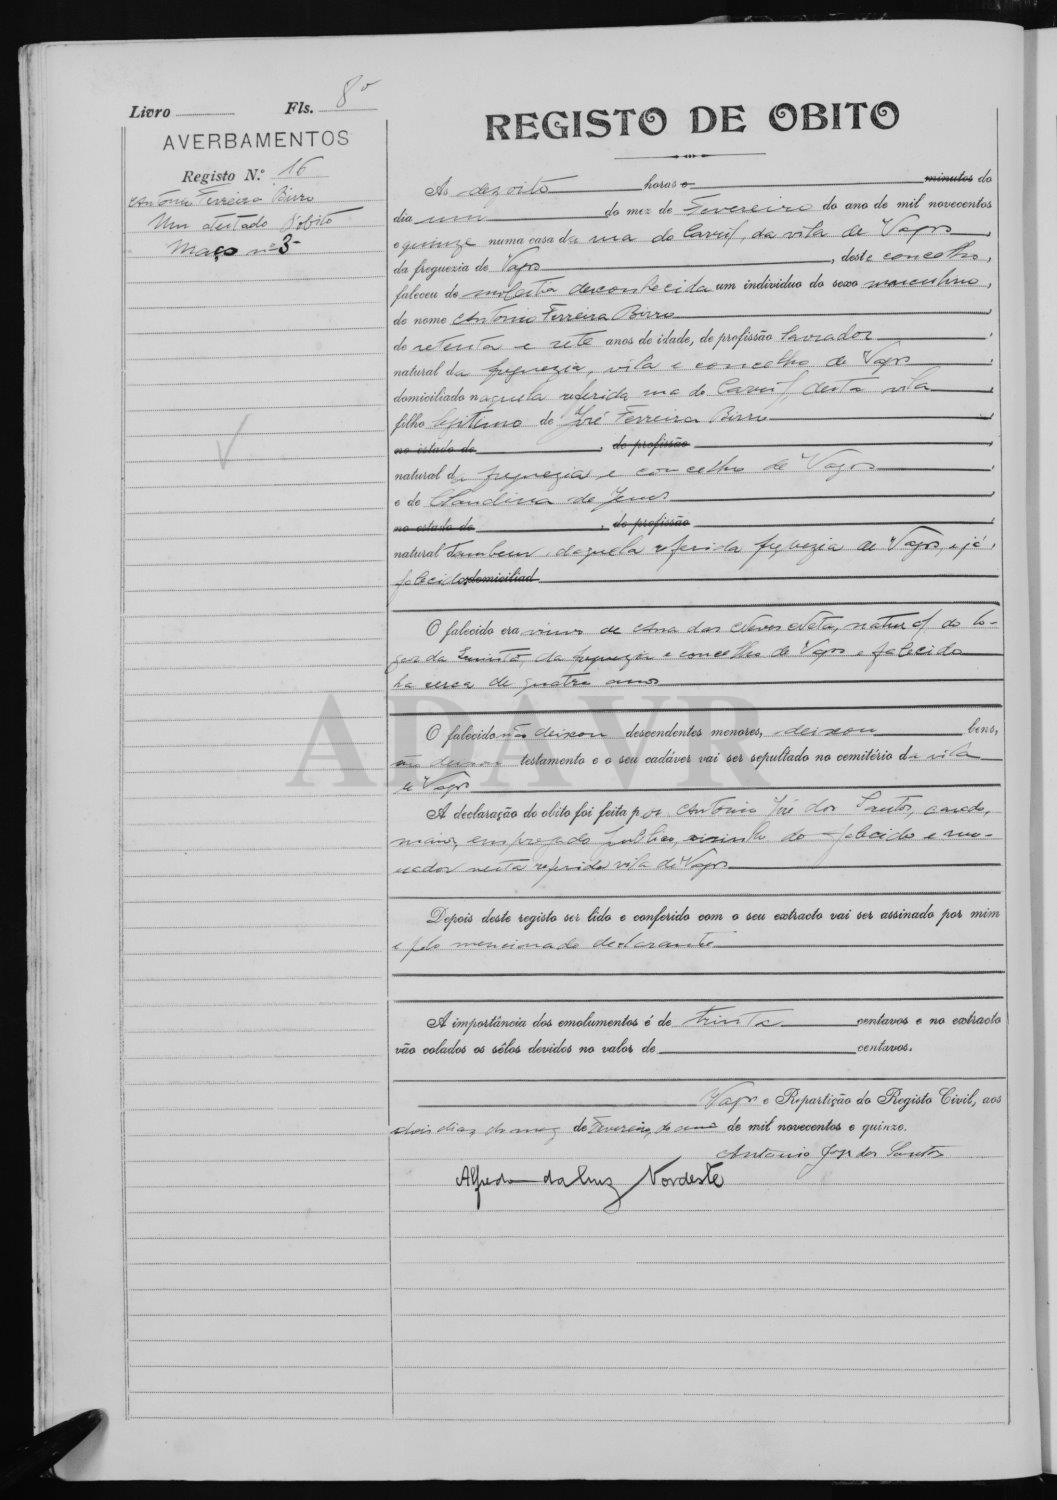 Livro Fls. 8v
AVERBAMENTOS
Registo N.º 16
Antonio Ferreira Birro
Um atestado d'obito
Maço nº 3
REGISTO DE OBITO
Ás dezoito horas e minutos do
dia um do mez de Fevereiro do ano de mil novecentos
e quinze numa casa da rua do da vila de Vagos,
da freguezia de Vagos, deste concelho,
faleceu de molestia desconhecida um individuo do sexo masculino,
de nome Antonio Ferreira Birro
de setenta e sete anos de idade, de profissão lavrador,
natural da freguezia, vila e concelho de Vagos,
domiciliado naquela referida rua do desta vila,
filho legitimo de José Ferreira Birro
no estado de, de profissão,
natural da freguezia e concelho de Vagos,
e de Claudina de Jesus,
no estado de, de profissão,
natural tambem daquela referida freguezia de Vagos, e já
falecidos domiciliad
O falecido era viuvo de Ana das Neves Neta, natural do lo-
gar da da freguezia e concelho de Vagos e falecida
ha cerca de quatro anos
O falecido não deixou descendentes menores, deixou bens,
não deixou testamento e o seu cadáver vai ser sepultado no cemitério da vila
de Vagos
A declaração do obito foi feita por Antonio José dos Santos, casado,
maior, empregado publico, visinho do falecido e mo-
rador nesta referida vila de Vagos
Depois deste registo ser lido e conferido com o seu extracto vai ser assinado por mim
e pelo mencionado declarante
A importância dos emolumentos é de trinta centavos e no extracto
vão colados os sêlos devidos no valor de centavos.
Vagos e Repartição do Registo Civil, aos
dois dias do mez de Fevereiro do ano de mil novecentos e quinze.
Antonio José dos Santos
Alfredo da Cruz Nordeste
ADAVR